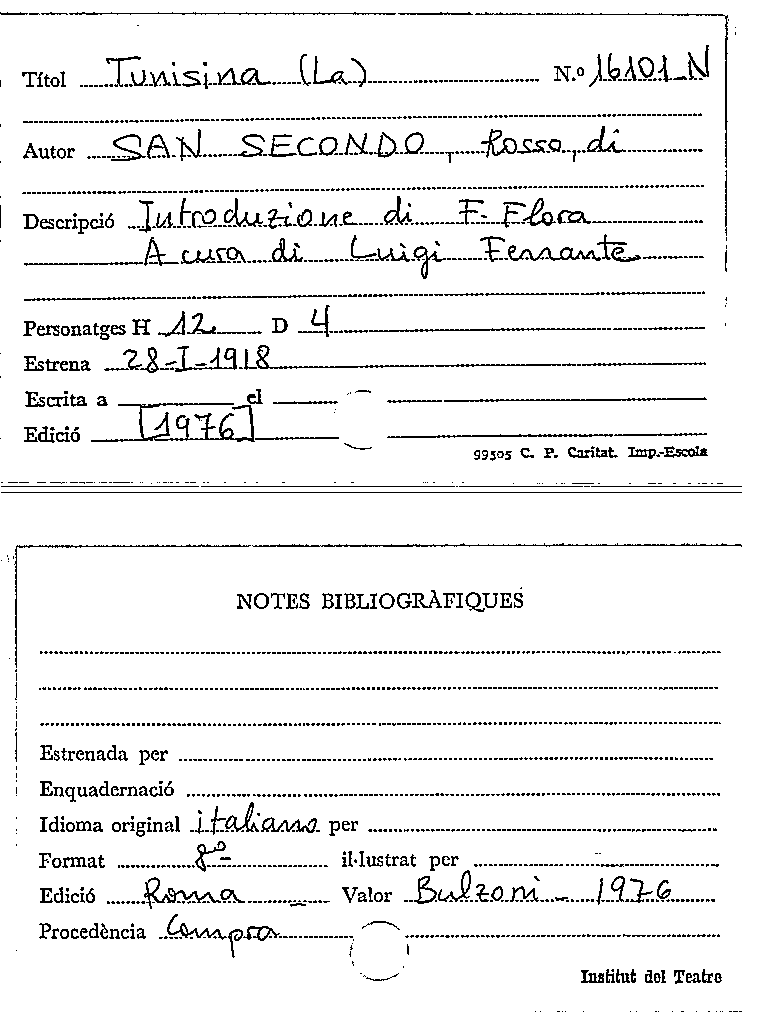 Títol Tunisina (La) N.º 16101-N
Autor SAN SECONDO, Rosso, di
Descripció Introduzione di F. Flora
A cura di Luigi Ferrante
Personatges H 12 D 4
Estrena 28-I-1918
Escrita a el
Edició [1976]
99505 C. P. Caritat. Imp.-Escola
NOTES BIBLIOGRÀFIQUES
Estrenada per
Enquadernació
Idioma original italiano per
Format 8º il·lustrat per
Edició Roma Valor Bulzoni - 1976
Procedència Compra
Institut del Teatre